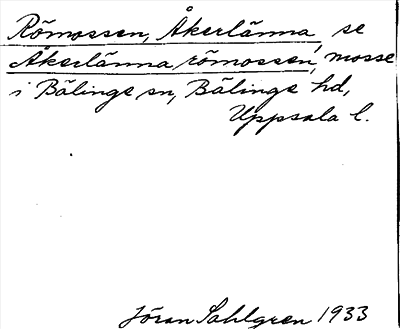 Römossen, Åkerlänna, se
Åkerlänna römossen, mosse
i Bälinge sn, Bälinge hd,
Uppsala l.
Jöran Sahlgren 1933